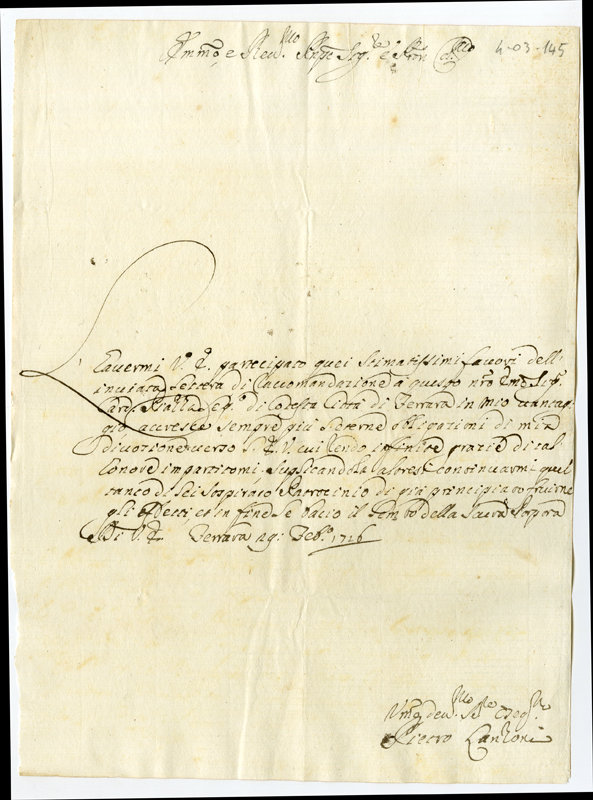 Emmo e Rev.mo Sigre e Pron Col.mo 4-03-145
L'avermi V. E. partecipato quei stimatissimi favori dell'
inviata lettera di raccomandazione a questo nro Sig.
Card. di cotesta Città di Ferrara in mio vantag-
gio accresce sempre più l'eterne obligazioni di mia
divozione verso l'E. V. cui rendo infinite grazie di tal
onore impartitomi, suplicandola adesso continuarmi quel
tanto di Lei sospirato Patrocinio di già principiato fruirne
gli effetti et in fine le bacio il Lembo della Sacra Porpora
Di V. E. Ferrara 29: Feb.o 1726
Umo dev.mo Se obg.mo
Pietro Canzoni